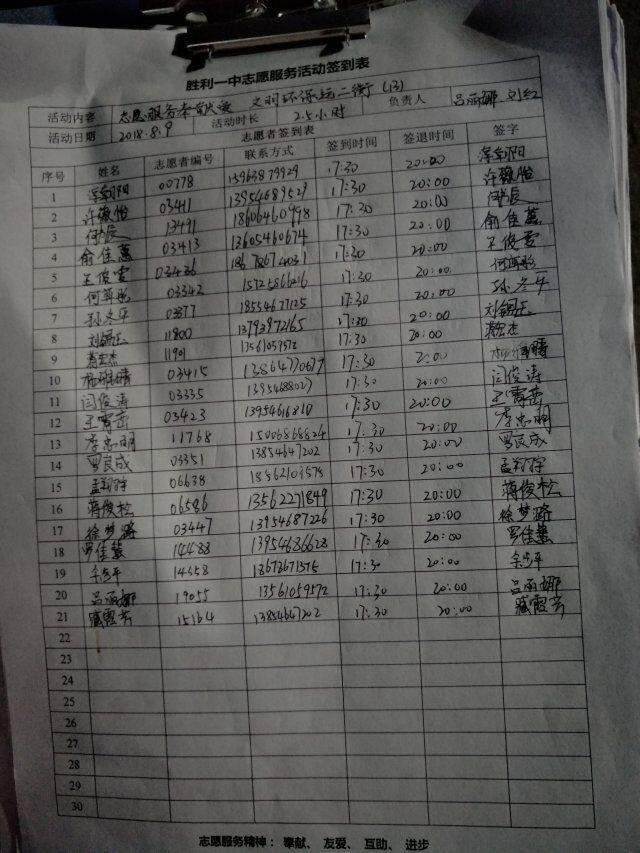 胜利一中志愿服务活动签到表
活动内容 志愿服务奉献爱 文明环保站二街 (13) 负责人 吕丽娜 刘红
活动日期 2018.8.9 活动时长 2.5小时
志愿者签到表
序号 姓名 志愿者编号 联系方式 签到时间 签退时间 签字
1 00778 13963879929 17:30 20:00
2 许馥怡 03411 13954689529 17:30 20:00 许馥怡
3 13491 17:30 20:00
4 俞佳蕙 03413 13605460674 17:30 20:00 俞佳蕙
5 王俊雯 03426 17:30 20:00 王俊雯
6 03342 15725866216 17:30 20:00
7 孙冬平 03377 18554677125 17:30 20:00 孙冬平
8 11800 13793972165 17:30 20:00
9 11901 17:30 20:00
10 03415 17:30
11 闫俊涛 03335 17:30 20:00 闫俊涛
12 王雪茹 03423 13954616810 17:30 20:00 王雪茹
13 李忠明 11768 15006868824 17:30 20:00 李忠明
14 罗良成 03351 13854647202 17:30 20:00 罗良成
15 06638 18562103578 17:30 20:00
16 蒋俊松 06586 13562271849 17:30 20:00 蒋俊松
17 徐梦潞 03447 13954687226 17:30 20:00 徐梦潞
18 罗佳慧 14488 13954686628 17:30 20:00 罗佳慧
19 14558 18678671575 17:30 20:00
20 吕丽娜 19055 13561059572 17:30 20:00 吕丽娜
21 臧霞芳 15164 13854647202 17:30 20:00 臧霞芳
22
23
24
25
26
27
28
29
30
志愿服务精神： 奉献、 友爱、 互助、 进步